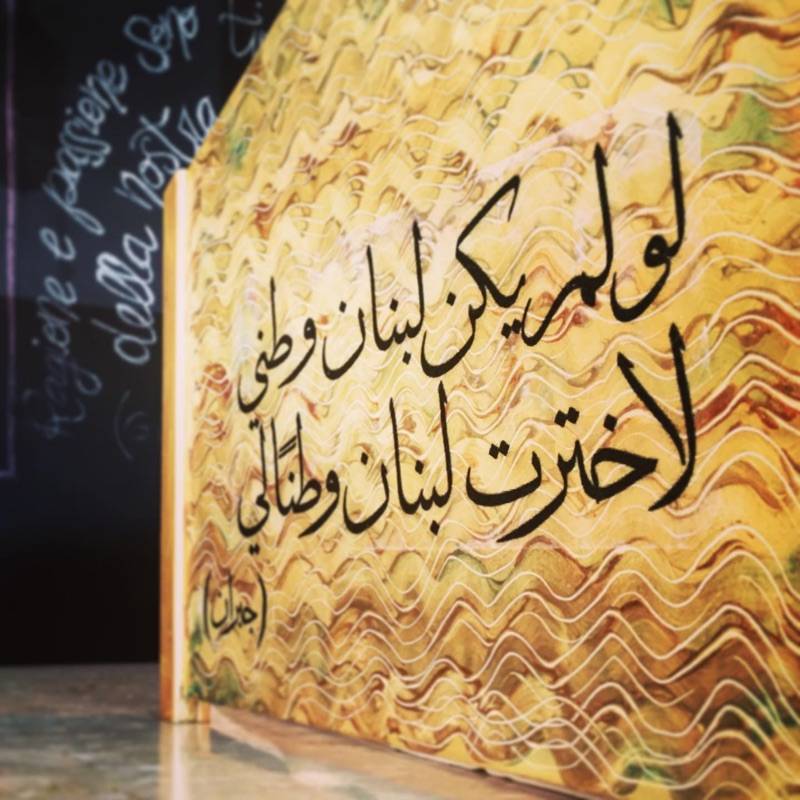 لو لم يكن لبنان وطني
لاخترت لبنان وطنًا لي
(جبران)
Ragione e passione sono
della nostra